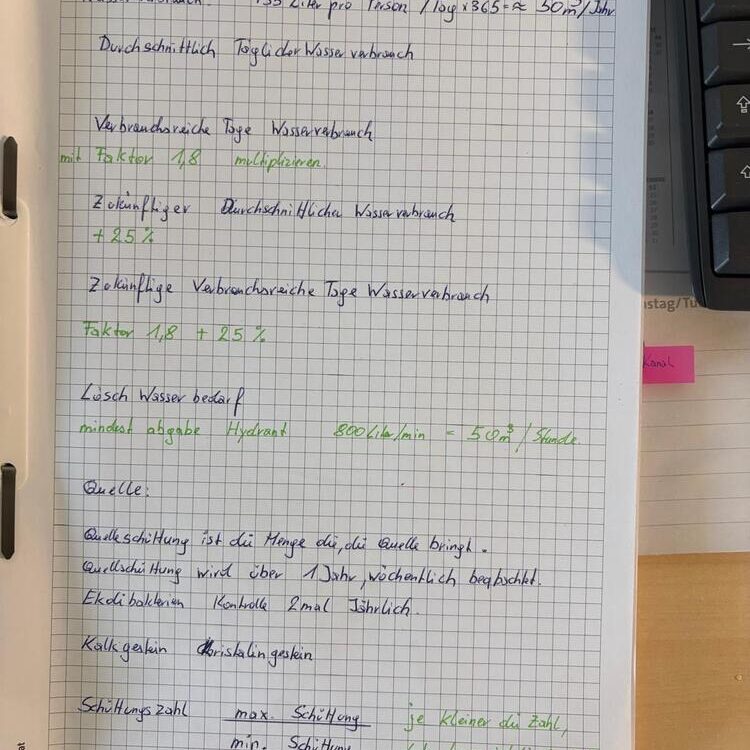 135 Liter pro Person / Tag x 365 = ≈ 50m³/Jahr
Durchschnittlich Täglicher Wasserverbrauch
Verbrauchsreiche Tage Wasserverbrauch
mit Faktor 1,8 multiplizieren.
Zokünftiger Durchschnittlicher Wasserverbrauch
+ 25 %
Zokünftige Verbrauchsreiche Tage Wasserverbrauch
Faktor 1,8 + 25 %
Lösch Wasser bedarf
mindest abgabe Hydrant 800 Liter/min = 50m³/Stunde.
Quelle:
Quellschüttung ist die Menge die, die Quelle bringt.
Quellschüttung wird über 1 Jahr, wöchentlich beobachtet.
Ekolibakterien Kontrolle 2mal Jährlich.
Kalkgestein Kristalingestein
Schüttungszahl max. Schüttung je kleiner die Zahl,
min. Schüttung
nstag/Tu
Kanal